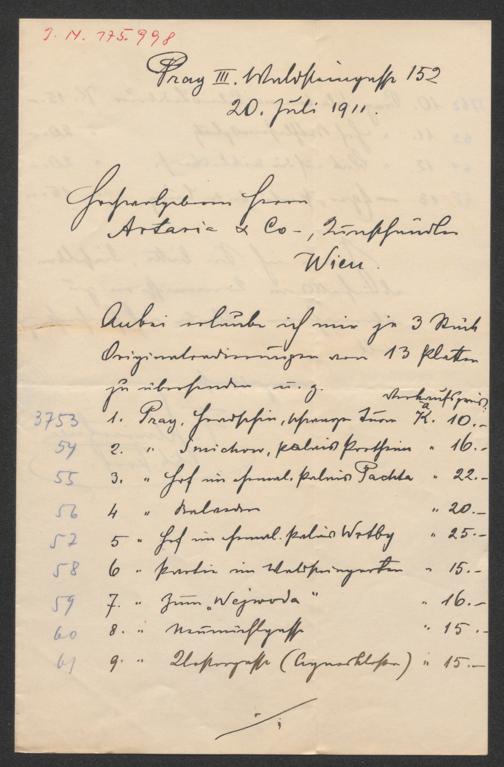 J. N. 175.998
Prag III. Waldsteingasse 152
20. Juli 1911.
Hochwolgeboren Herrn
Artaria & Co-, Kunsthändler
Wien.
Anbei erlaube ich mir je 3 Stück
Originalradierungen von 13 Platten
zu übersenden u. z.
Verkaufspreis
3753 1. Prag, Hradschin, schwarzer Turm à K. 10.-
54 2. " Smichow, palais Portheim " 16.-
55 3. " Hof im ehemal. Palais Pachta " 22.-
56 4 " " 20.-
57 5 " Hof im ehemal. Palais Wrtby " 25.-
58 6 " Partie im Waldsteingarten " 15.-
59 7. " Zum "Wejwoda" " 16.-
60 8. " Neumühlgasse " 15.-
61 9. " Klostergasse (Agneskloster) " 15.-
./.